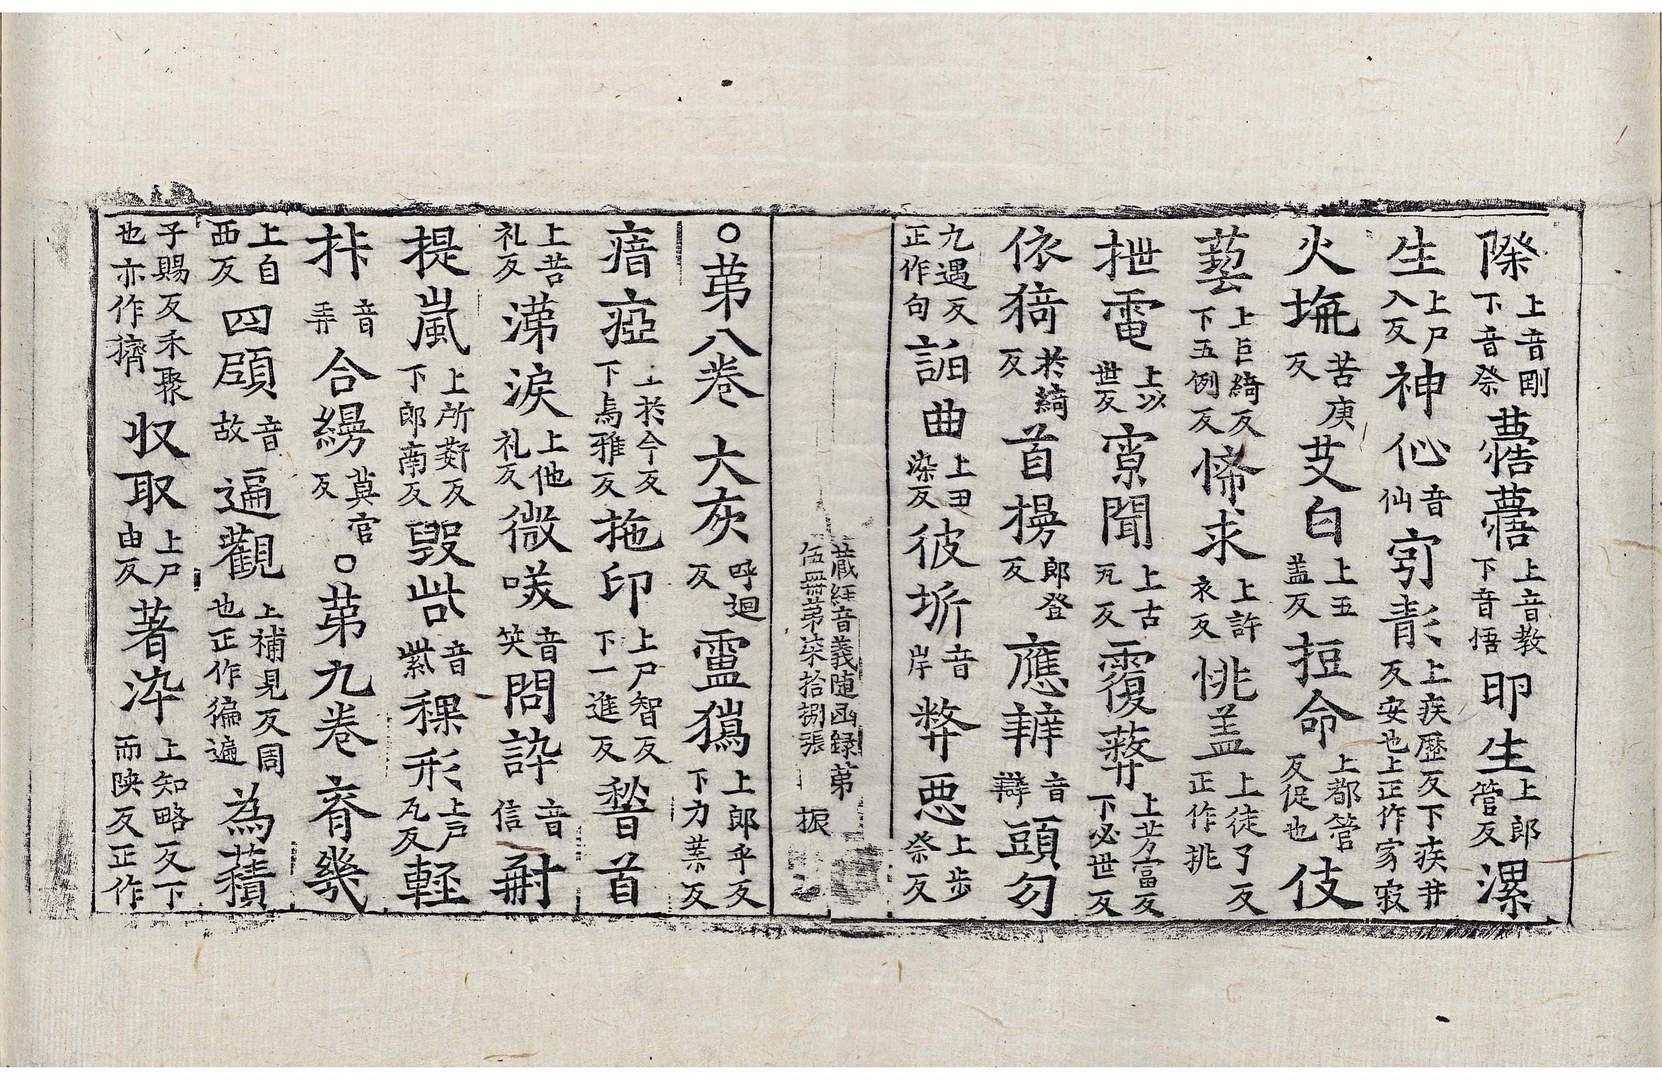 際上音剛下音祭 薏 下音悟上音教 卵生上郎管反 漯
生上尸入反 神仚音仙 㝌䵻上疾歷反下疾井反安也上正作家寂
火坑苦庚反 艾白上五盖反 挋命上都管反促也 伎
藝上巨綺反下五例反 悕求上許衣反 恌盖上徒了反正作挑
抴電上以世反 寮聞上古瓦反 覆蔽上芳富反下必世反
依猗於綺反 首楞郎登反 應辢音辯 頭勾
九遇反正作句 詘曲上丑染反 彼圻音岸 弊惡上步祭反
藏經音義随函録第
伍冊第柒拾捌張 振
○第八卷 大灰呼迴反 靈獦上郎乎反下力葉反
瘖瘂上於今反下烏雅反 拖印上尸智反下一進反 㿱首
上苦礼反 涕淚上他礼反 微咲音笑 問訊音信 㝵
提嵐上所鄰反下郎南反 毀呰音紫 稞形上戶瓦反 輕
挊音弄 合縵莫官反 ○第九卷 脊幾
上自西反 四顧音故 遍觀上補見反周也正作徧遍 為積
子賜反禾聚也亦作𥢶 収取上尸由反 著染上知略反下而陝反正作